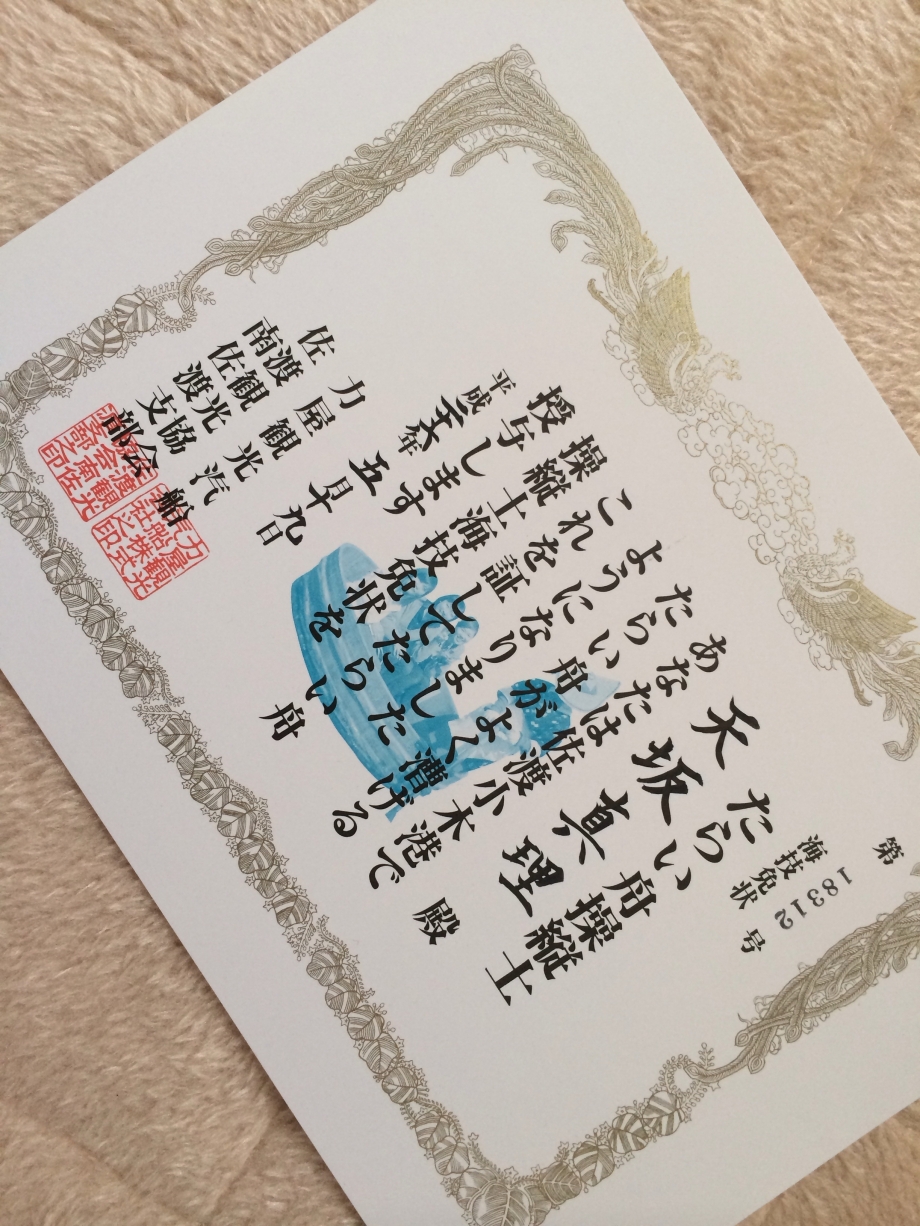 第18312号
海技免状
たらい舟操縦士
天坂真理 殿
あなたは佐渡小木港で
たらい舟がよく漕げる
ようになりました
これを証してたらい舟
操縦士海技免状を
授与します
平成二十六年五月十九日
力屋観光汽船
佐渡観光協会
南佐渡支部
力屋觀光
汽船株式
会社之印